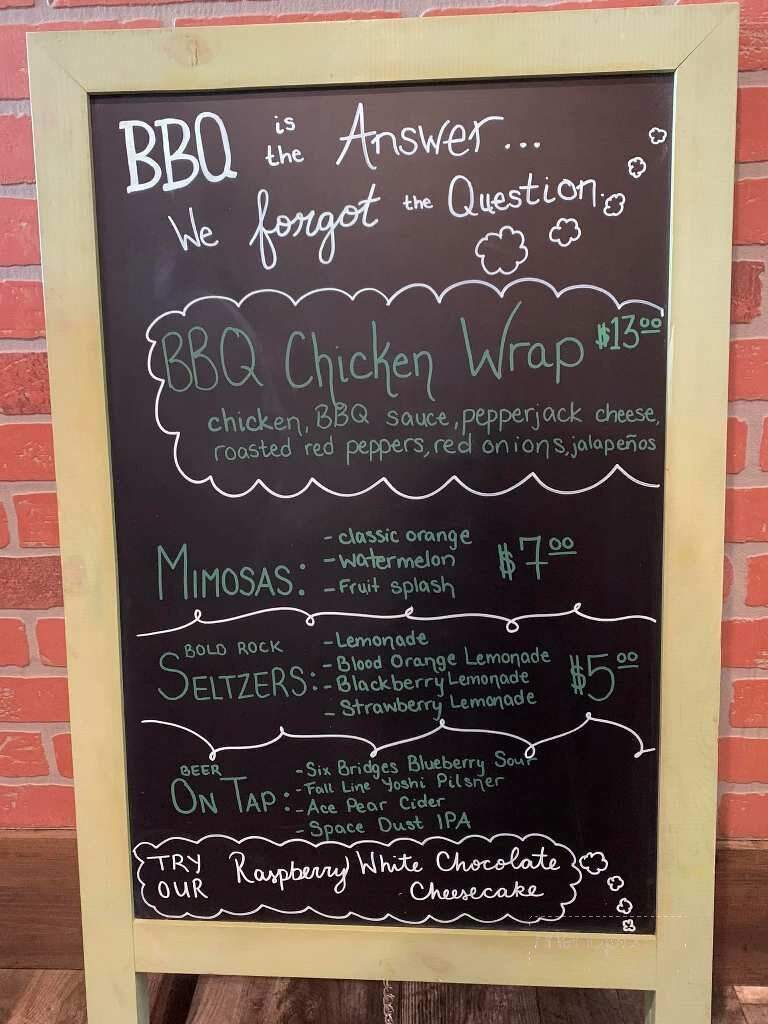 BBQ is the Answer...
We forgot the Question.
BBQ Chicken Wrap $13.00
chicken, BBQ sauce, pepperjack cheese,
roasted red peppers, red onions, jalapeños
MIMOSAS:
- classic orange
- watermelon
- Fruit splash
$7.00
BOLD ROCK
SELTZERS:
- Lemonade
- Blood Orange Lemonade
- Blackberry Lemonade
- Strawberry Lemonade
$5.00
BEER
ON TAP:
- Six Bridges Blueberry Sour
- Fall Line Yoshi Pilsner
- Ace Pear Cider
- Space Dust IPA
TRY OUR
Raspberry White Chocolate
Cheesecake